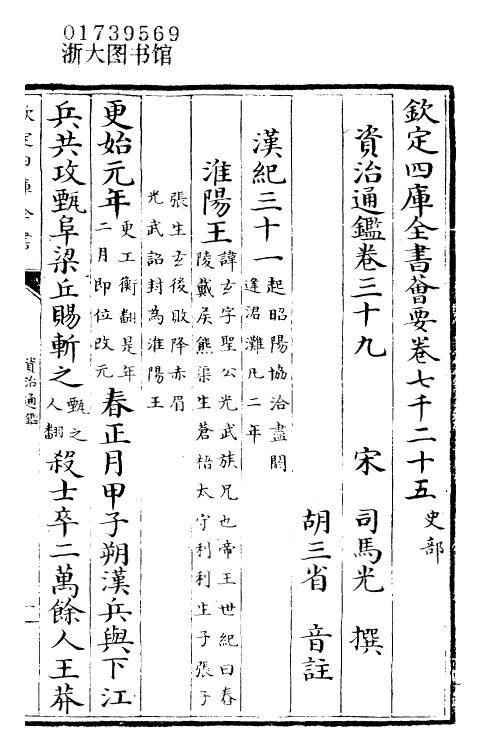 01739569
浙大图书馆
欽定四庫全書薈要卷七千二十五 史部
資治通鑑卷三十九
宋 司馬光 撰
胡三省 音註
漢紀三十一 起昭陽協洽盡閼逢涒灘凡二年
淮陽王 諱玄字聖公光武族兄也帝王世紀曰春陵戴侯熊渠生蒼梧太守利利生子張子張生玄後敗降赤眉光武詔封為淮陽王
更始元年 更工衡翻是年二月即位改元 春正月甲子朔漢兵與下江
兵共攻甄阜梁丘賜斬之 甄之人翻 殺士卒二萬餘人王莽
欽定四庫全書
資治通鑑